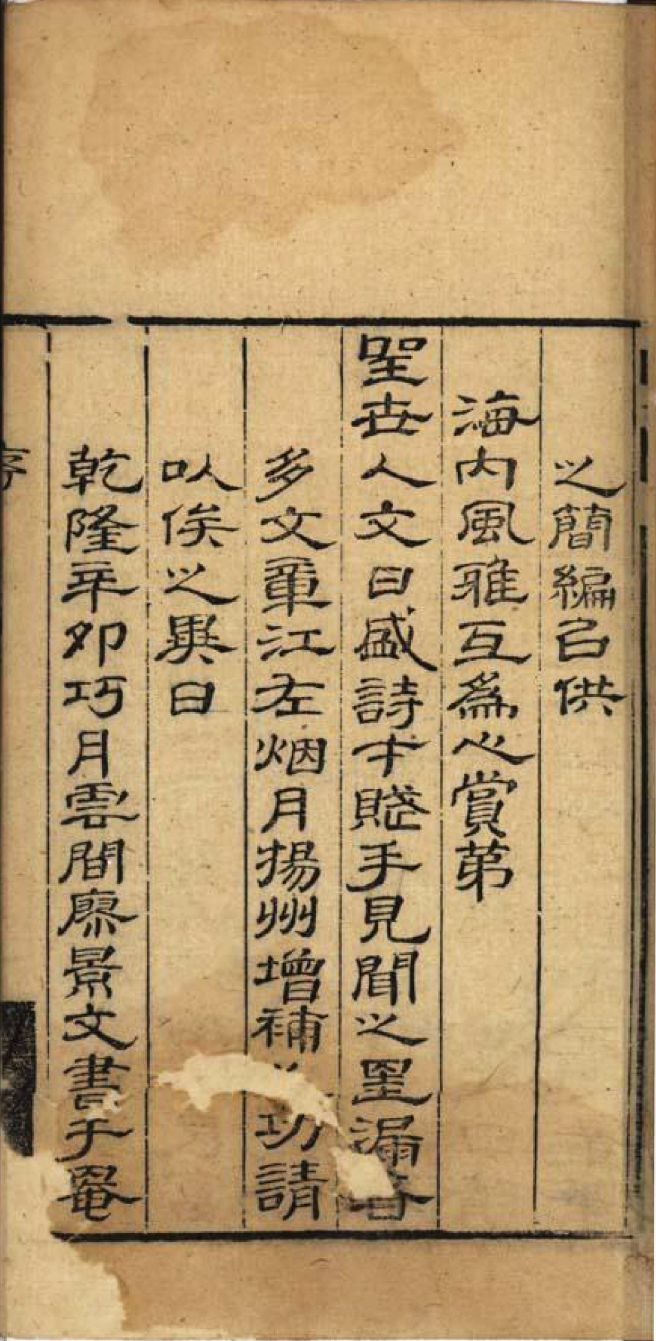 之簡編㠯供
海内風雅互為心賞第
聖世人文日盛詩才賦手見聞之罣漏者
多文章江左烟月揚州增補 功請
以俟之異日
乾隆辛卯巧月雲間廖景文書于罨
序